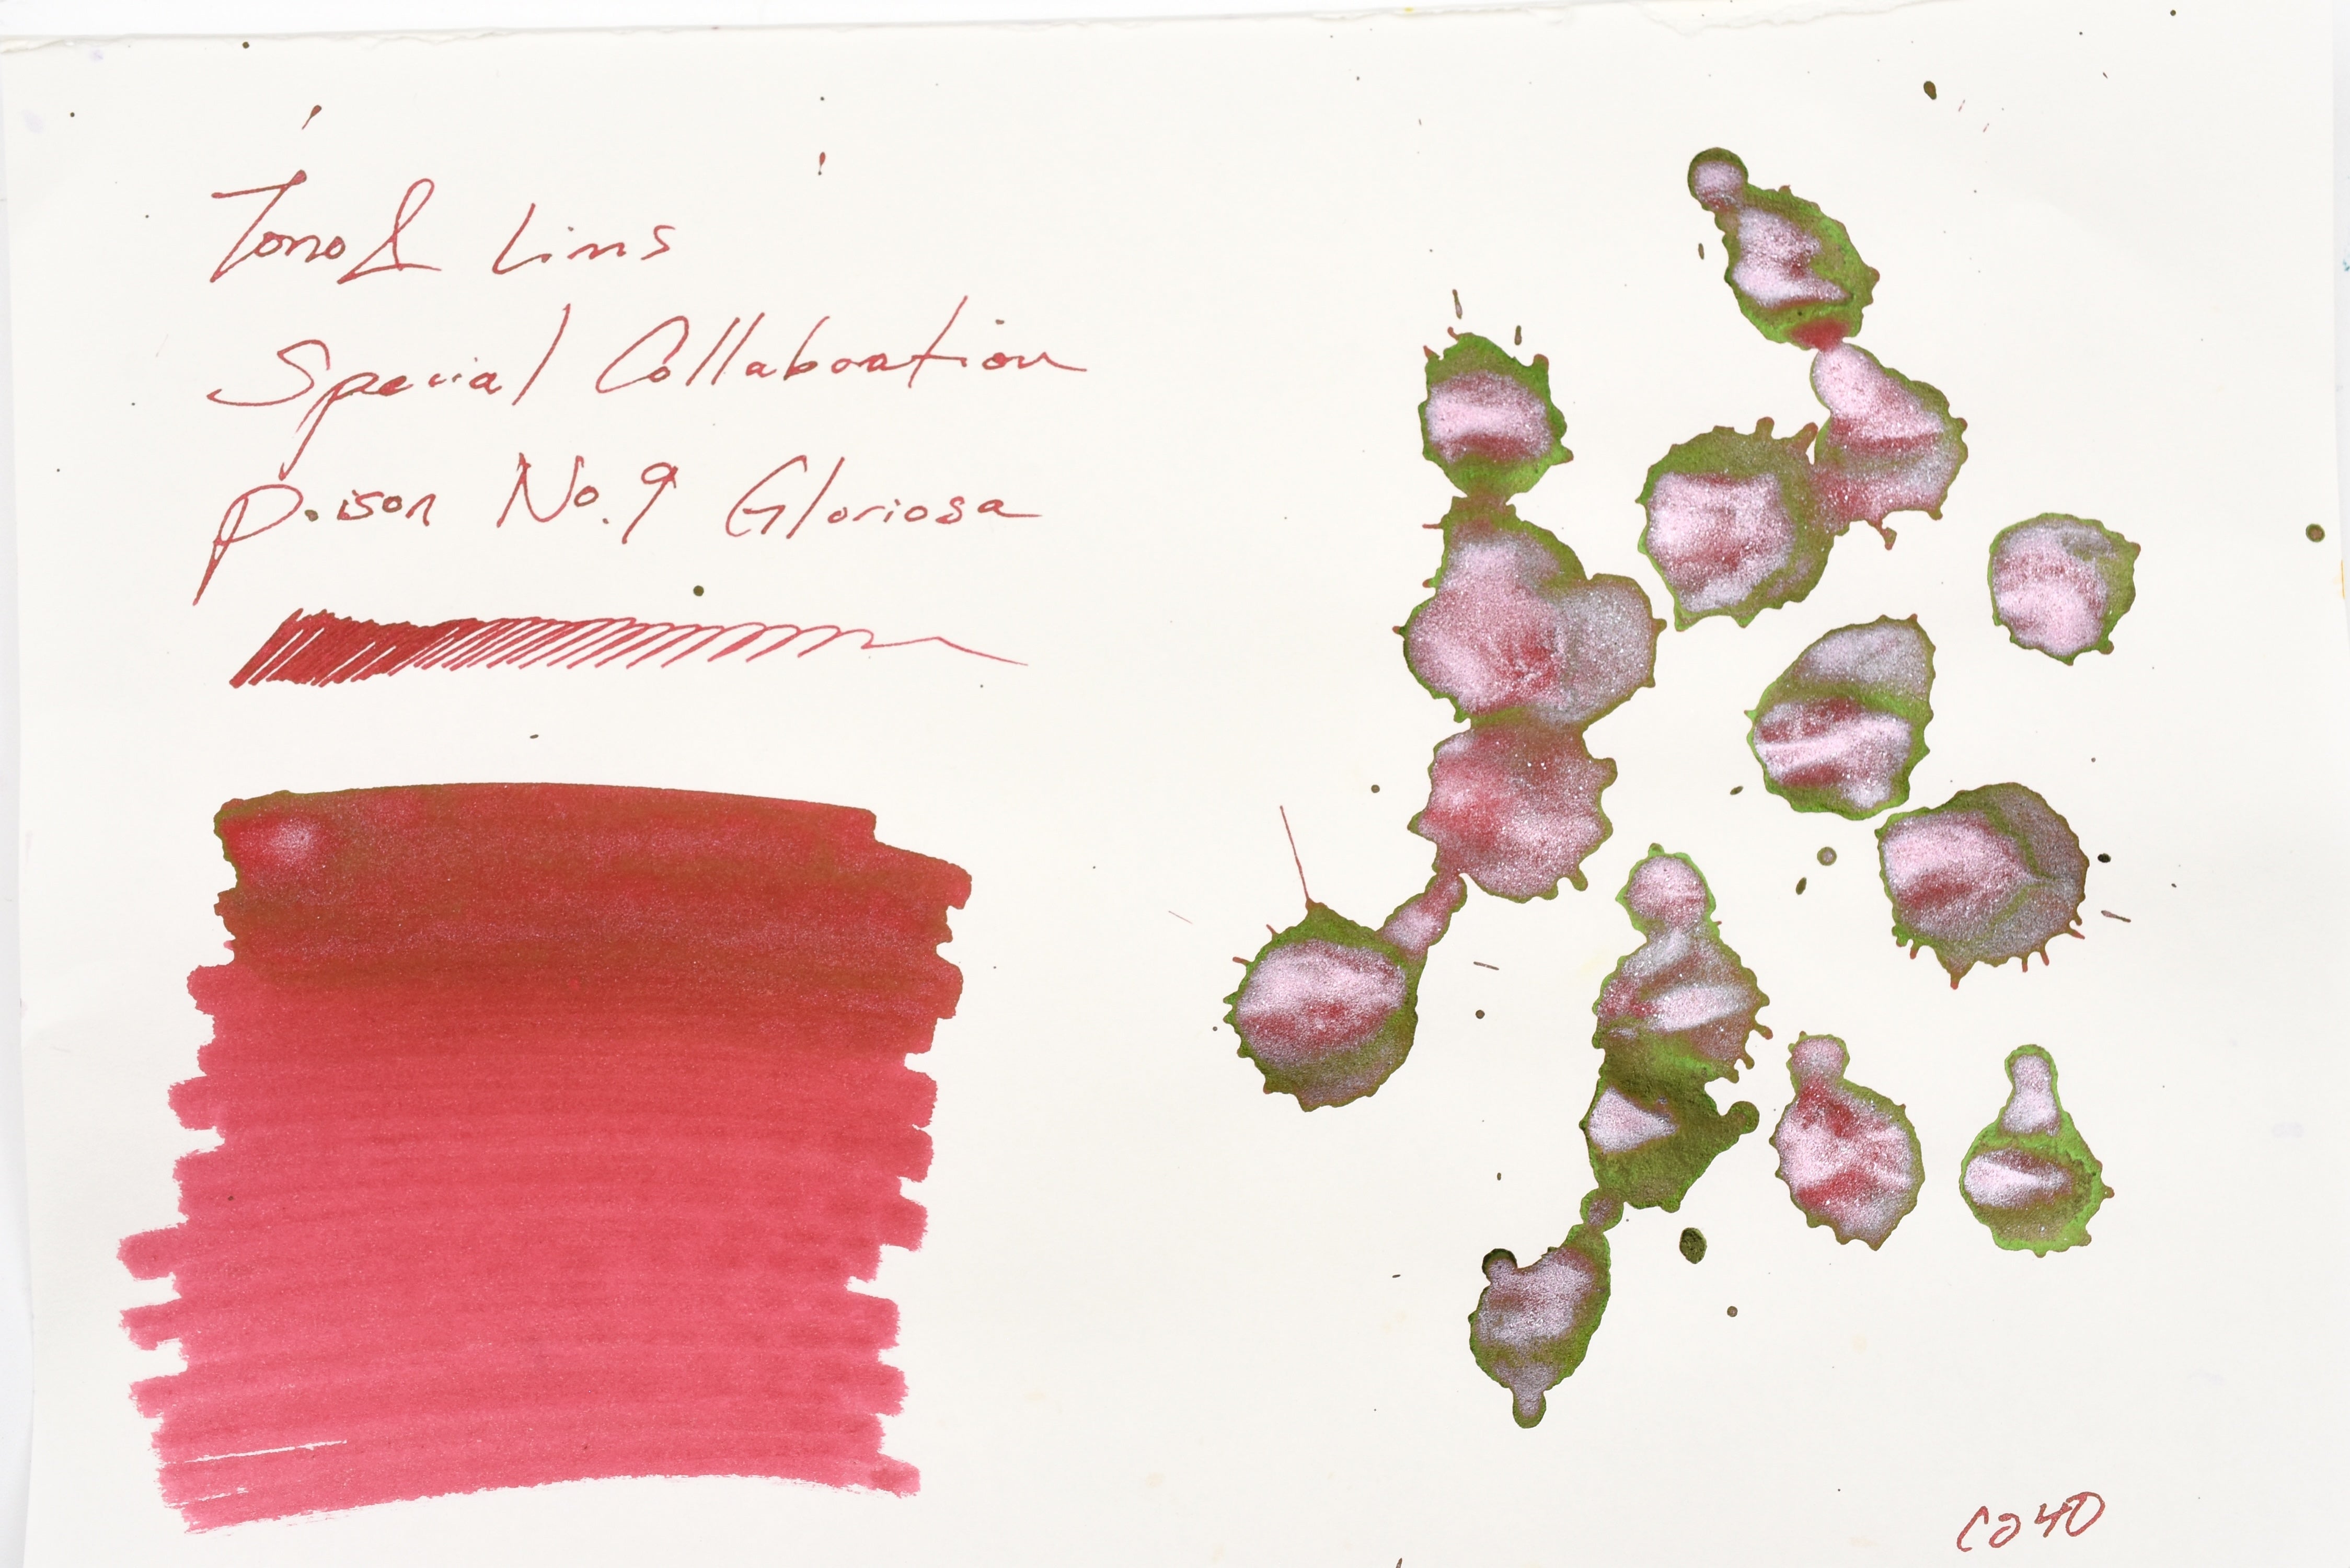 Tono & Lims
Special Collaboration
Poison No.9 Gloriosa